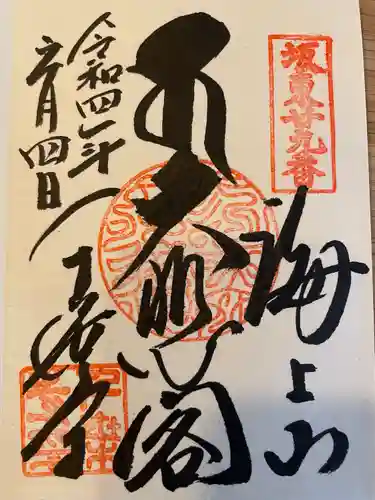 坂東廿九番
海上山
大悲閣
令和四年
六月四日
千葉寺